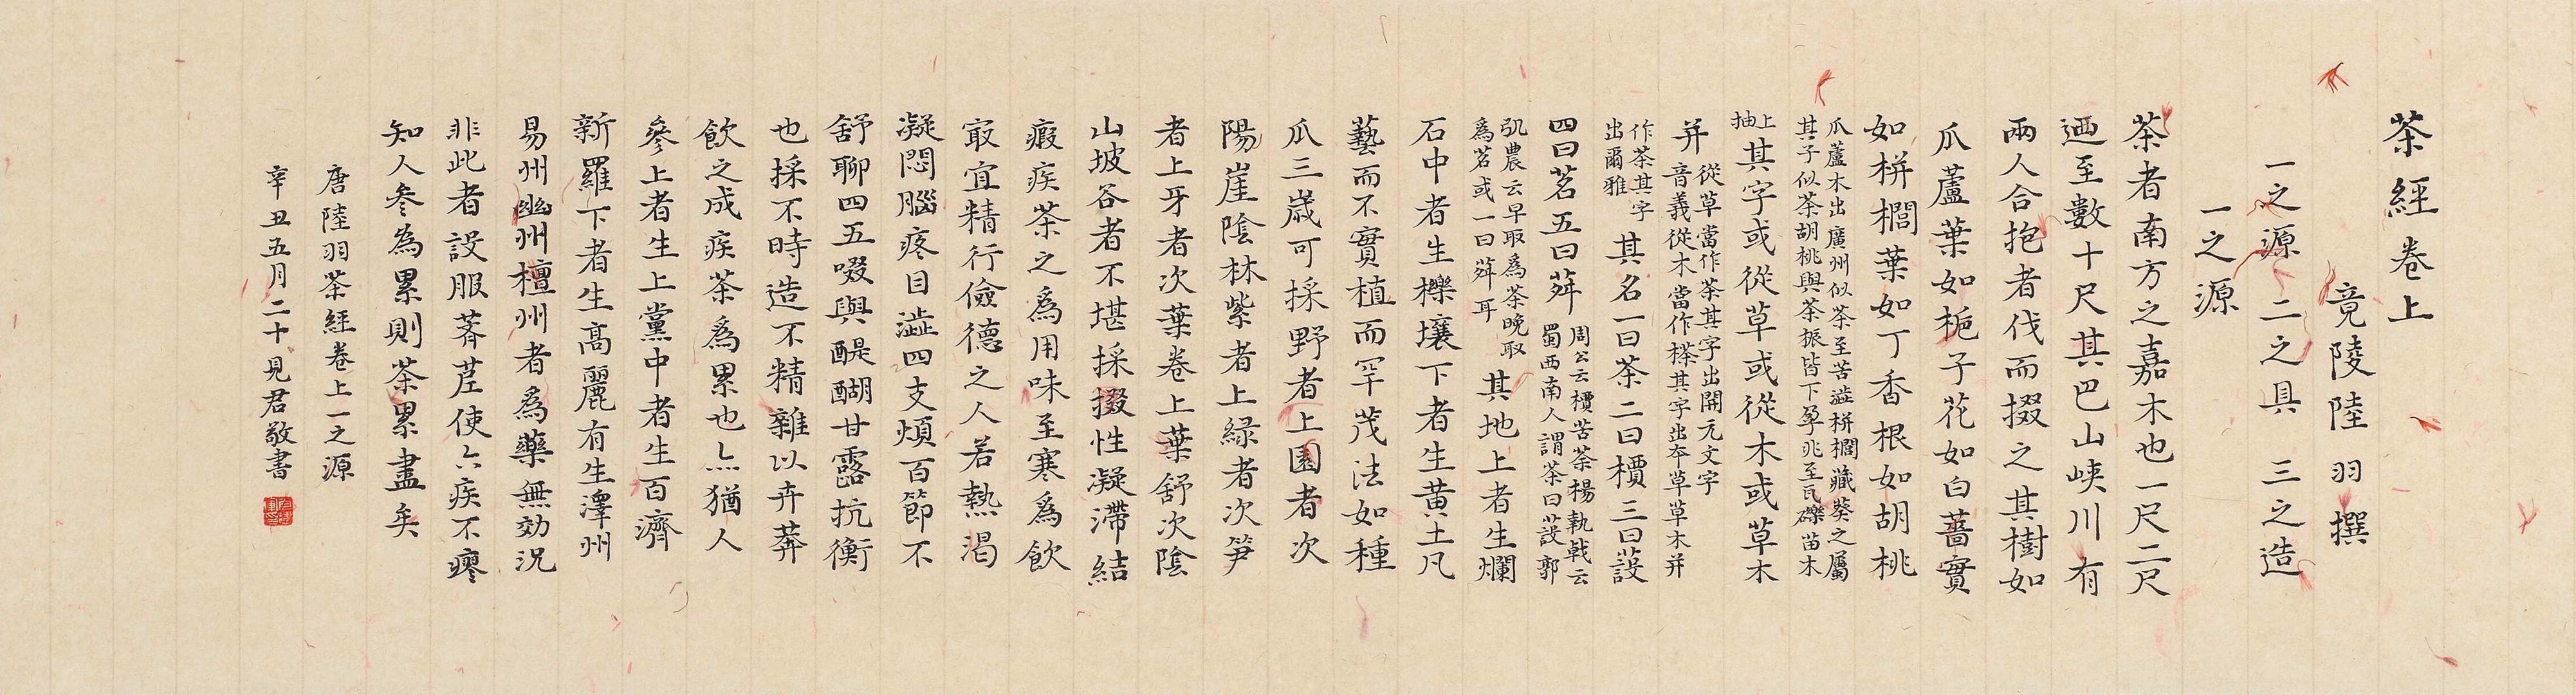 茶經卷上
竟陵陸羽撰
一之源 二之具 三之造
一之源
茶者南方之嘉木也一尺二尺
迺至數十尺其巴山峽川有
兩人合抱者伐而掇之其樹如
瓜蘆葉如梔子花如白薔薇實
如栟櫚葉如丁香根如胡桃
瓜蘆木出廣州似茶至苦澁栟櫚藏葵之屬
其子似茶胡桃與茶振皆下孕兆至瓦礫苗木
上抽
其字或從草或從木或草木
并
從草當作茶其字出開元文字
音義從木當作㮈其字出本草草木并
作荼其字
出爾雅
其名一曰茶二曰檟三曰蔎
四曰茗五曰荈
周公云檟苦荼楊執戟云
蜀西南人謂茶曰蔎郭
弘農云早取爲茶晚取
爲茗或一曰荈耳
其地上者生爛
石中者生櫟壤下者生黄土凡
藝而不實植而罕茂法如種
瓜三歲可採野者上園者次
陽崖陰林紫者上緑者次笋
者上牙者次葉卷上葉舒次陰
山坡谷者不堪採掇性凝滯結
瘕疾茶之爲用味至寒爲飲
㝡宜精行儉德之人若熱渴
凝悶腦疼目澁四支煩百節不
舒聊四五啜與醍醐甘露抗衡
也採不時造不精雜以卉莽
飲之成疾茶爲累也亦猶人
參上者生上黨中者生百濟
新羅下者生高麗有生澤州
易州幽州檀州者爲藥無効況
非此者設服薺苨使六疾不瘳
知人參為累則茶累盡矣
唐陸羽茶經卷上一之源
辛丑五月二十見君敬書